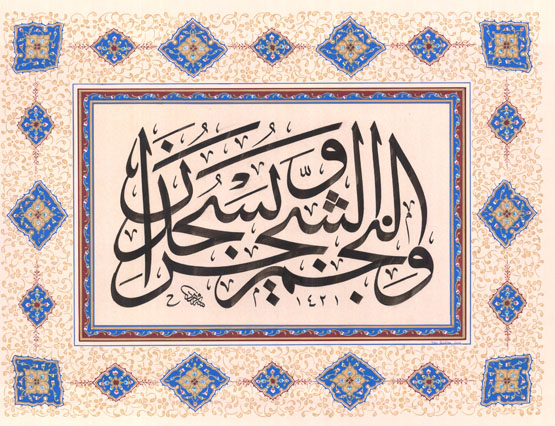 والنجم والشجر يسجدان
١٤٢١